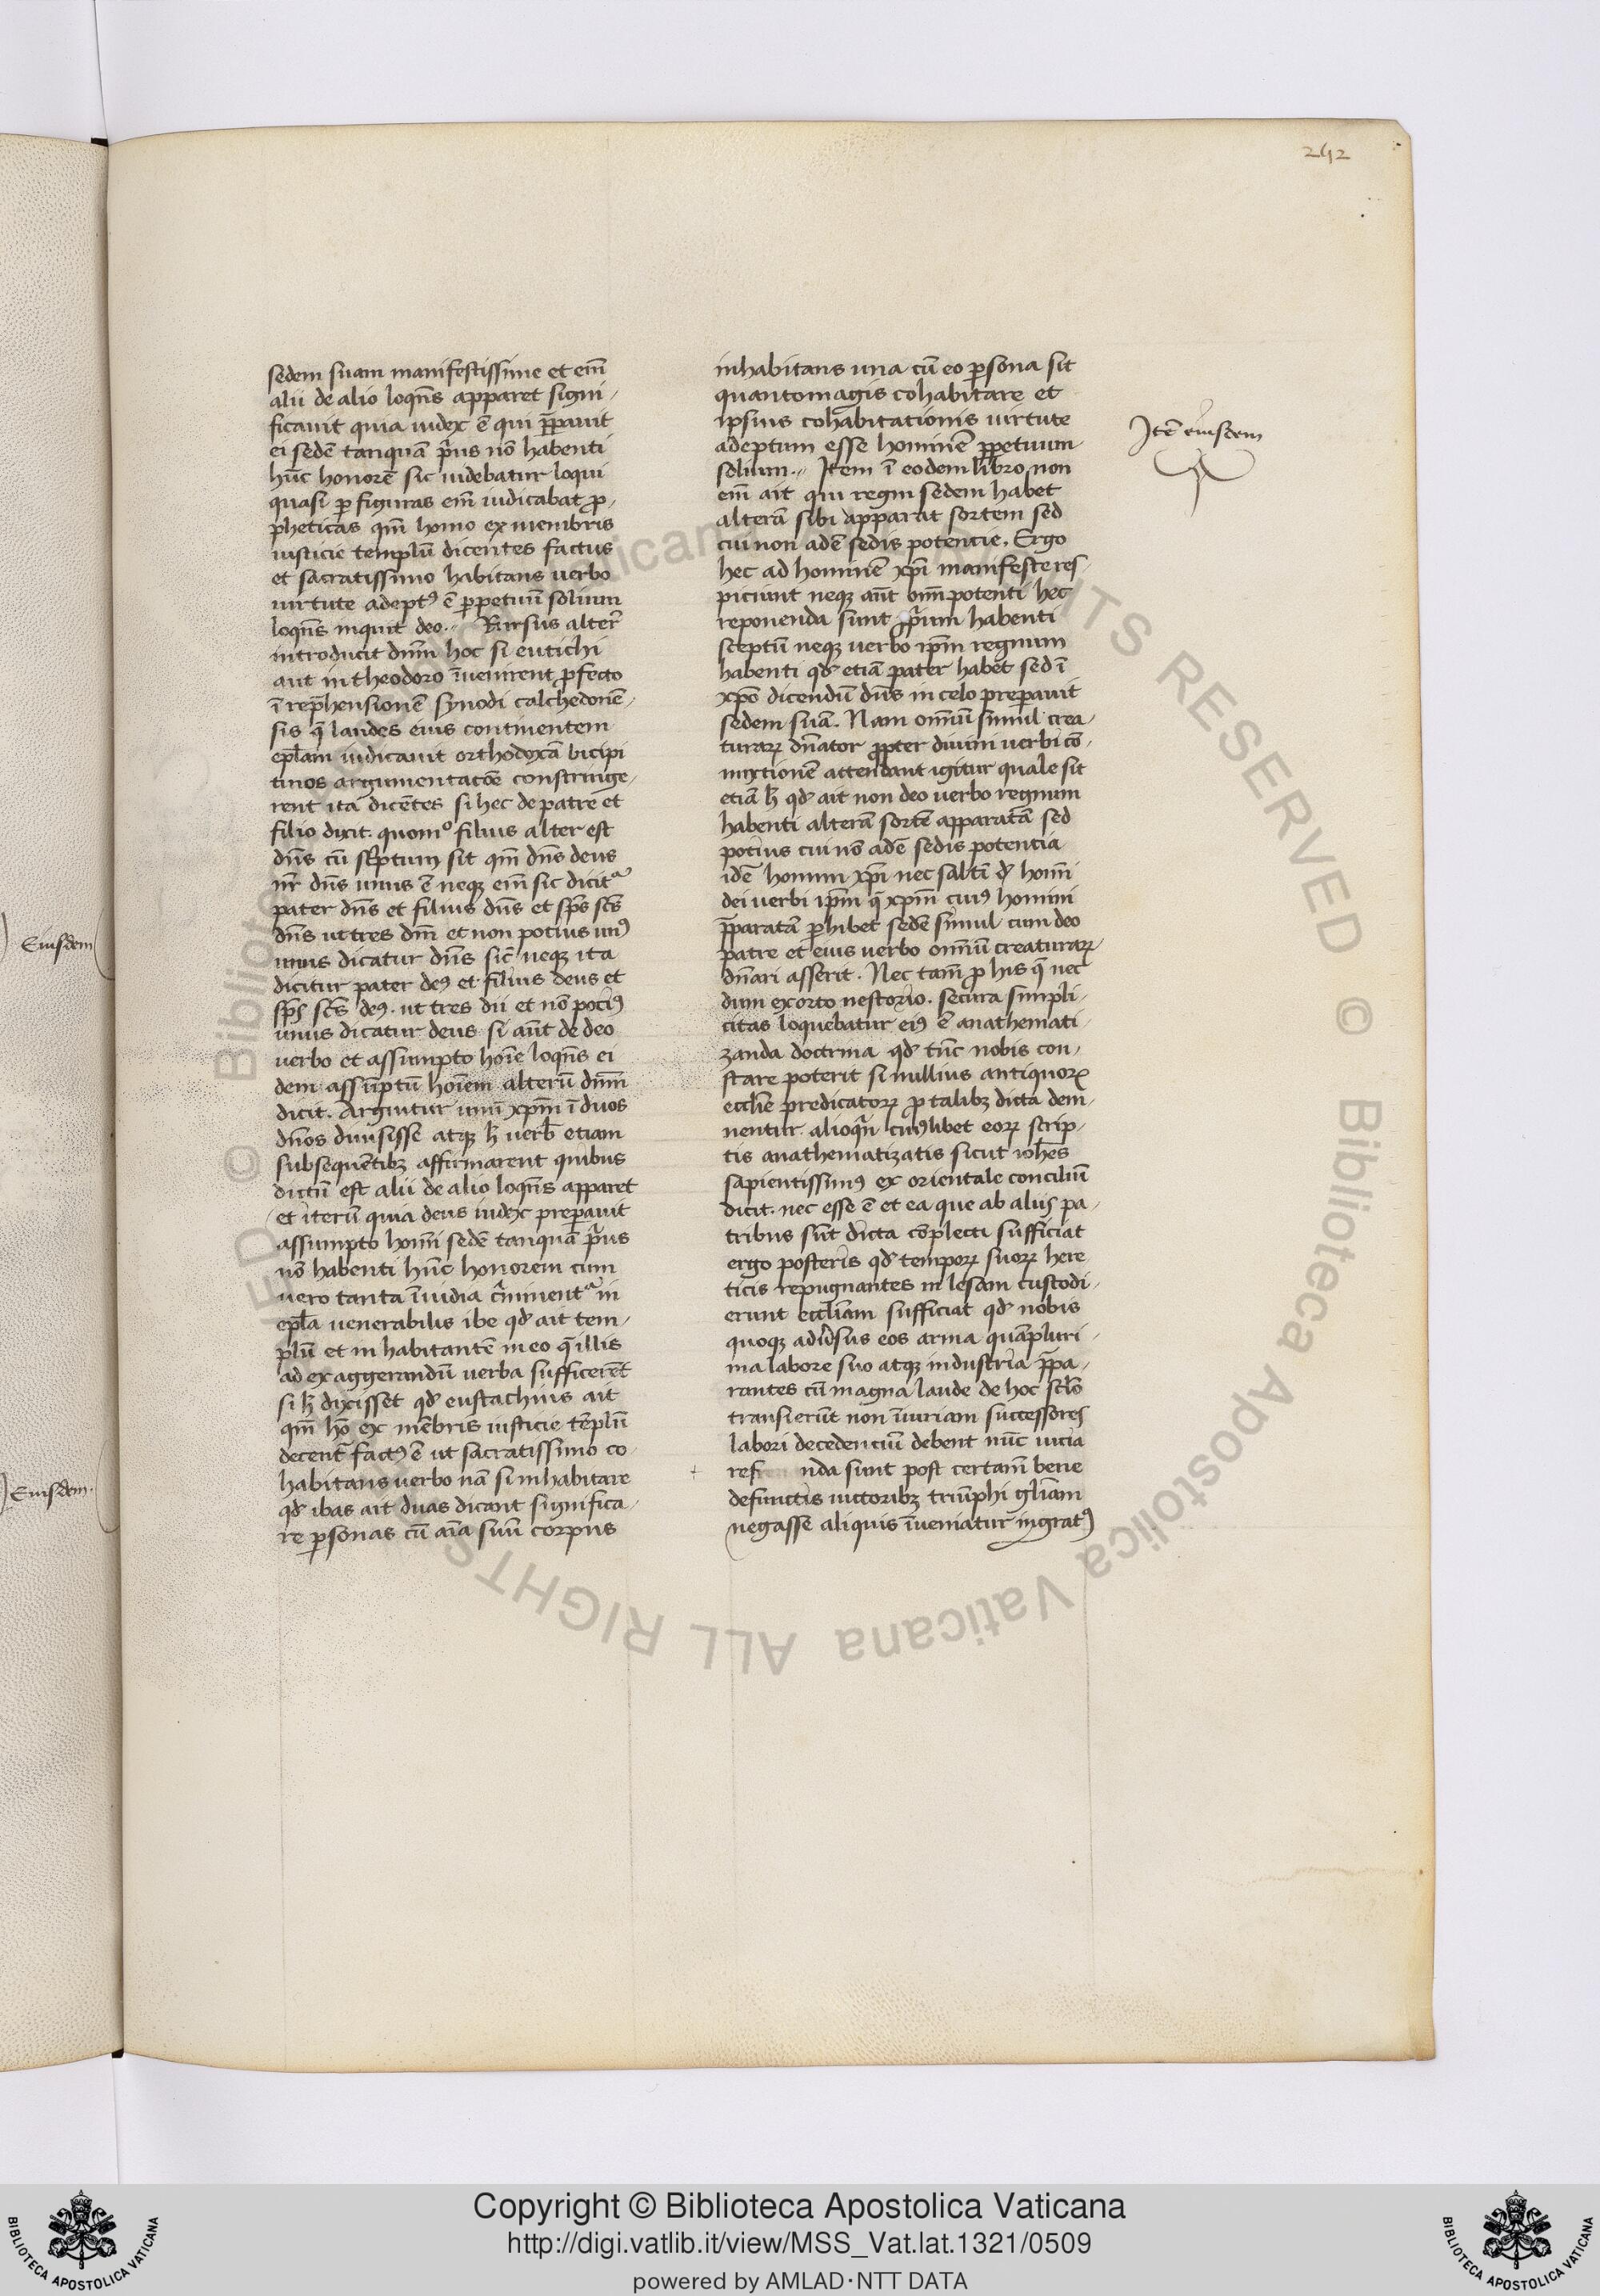 242
sedem suam manifestissime et em̄
alii de alio loqn̄s apparet signi-
ficauit quia iudex ē qui p̄parauit
ei sedē tanquā prius nō habenti
hūc honorē sic uidebatur loqui
quasi per figuras em̄ iudicabat pro-
pheticas qm̄ homo ex membris
iusticie templū dicentes factus
et sacratissimo habitans uerbo
uirtute adeptꝰ ē perpetuū solium
loqn̄s inquit deo.. Rursus alter̄
introducit dnm̄ hoc si eutichi
aut in theodoro īuenirent profecto
ī reprehensionē synodi calchedonē-
sis que laudes eius continentem
epl̄am iudicauit orthodoxā bicipi
tinos argumentatōe constringe-
rent ita dicētes si hec de patre et
filio dicit. quomº filius alter est
dn̄s cū scriptum sit qm̄ dn̄s deus
nr̄ dn̄s unus ē neqꝫ em̄ sic dicitur
pater dn̄s et filius dn̄s et sp̄s sc̄s
dn̄s ut tres dn̄i et non potius unꝰ
unus dicatur dn̄s sic neqꝫ ita
dicitur pater deꝰ et filius deus et
sp̄s sc̄s deꝰ. ut tres dii et nō potiꝰ
unus dicatur deus si aūt de deo
uerbo et assumpto hoīe loqn̄s ei
dem assūptū hoīem alterū dnm̄
dicit. Arguitur unū xp̄m ī duos
dn̄os diuisisse atqꝫ hͥ uerb̄ etiam
subsequētibꝫ affirmarent quibus
dictū est alii de alio loqn̄s apparet
et iterū quia deus iudex preparauit
assumpto homī sedē tanquā prius
nō habenti hūc honorem cum
uero tanta īuidia criminentur in
epl̄a uenerabilis ibe qd̓ ait tem-
plū et in habitantē in eo que illis
ad exaggerandū uerba sufficerēt
si hͥ dixisset qd̓ eustachius ait
qm̄ hō ex mēbris iusticie tēplū
decenter factꝰ ē ut sacratissimo co-
habitans uerbo nā si inhabitare
qd̓ ibas ait duas dicant significa-
re personas cū aīa suū corpus
inhabitans una cū eo persona sit
quantomagis cohabitare et
ipsius cohabitationis uirtute
adeptum esse hominē perpetuum
solium.. Item ī eodem libro non
em̄ ait qui regni sedem habet
alterā sibi apparat sortem sed
cui non adē sedis potencie. Ergo
hec ad hominē xp̄i manifeste res-
piciunt neqꝫ aūt om̄ipotenti hec
reponenda sunt proprium habenti
sceptrū neqꝫ uerbo ip̄m regnum
habenti qd̓ etiā pater habet sed ī
xp̄o dicendū dn̄s in celo preparauit
sedem suā. Nam om̄iū simul crea-
turarꝫ dn̄ator propter diuini uerbi cō-
mixtionē attendant igitur quale sit
etiā hͥ qd̓ ait non deo uerbo regnum
habenti alterā sortē apparatā sed
potius cui nō adē sedis potencia
idē homini xp̄i nec saltī qd̓ homī
dei uerbi ip̄m que xp̄m cuiꝰ homini
p̄paratā perhibet sedē simul cum deo
patre et eius uerbo om̄iū creaturarꝫ
dn̄ari asserit. Nec tam̄ pro his que nec
dum exorto nestorio. secura simpli-
citas loquebatur eiꝰ ē anathemati-
zanda doctrina qd̓ tūc nobis con-
stare poterit si nullius antiquorꝫ
eccl̄ie predicatorꝫ pro talibꝫ dicta dem-
nentur. alioquin cuiꝰlibet eorꝫ scrip-
tis anathematizatis sicut ioh̄es
sapientissimꝰ ex orientale conciliū
dicit. nec esse ē et ea que ab aliis pa-
tribus sūt dicta cōplecti sufficiat
ergo posteris qd̓ temporꝫ suorꝫ here
ticis repugnantes in lesam custodi-
erunt eccl̄iam sufficiat qd̓ nobis
quoqꝫ aduersus eos arma quāpluri-
ma labore suo atqꝫ industria p̄pa-
rantes cū magna laude de hoc scl̄o
transierūt non īiuriam successores
labori decedenciū debent nūc iucia
ref nda sunt post certam̄ bene
defunctis uictoribꝫ triūphi gl̄iam
negasse aliquis īueniatur ingratꝰ
Itē eiusdem
Eiusdem
Eiusdem.
© Biblioteca Apostolica Vaticana ALL RIGHTS RESERVED
Copyright © Biblioteca Apostolica Vaticana
http://digi.vatlib.it/view/MSS_Vat.lat.1321/0509
powered by AMLAD·NTT DATA
BIBLIOTECA APOSTOLICA VATICANA
BIBLIOTECA APOSTOLICA VATICANA